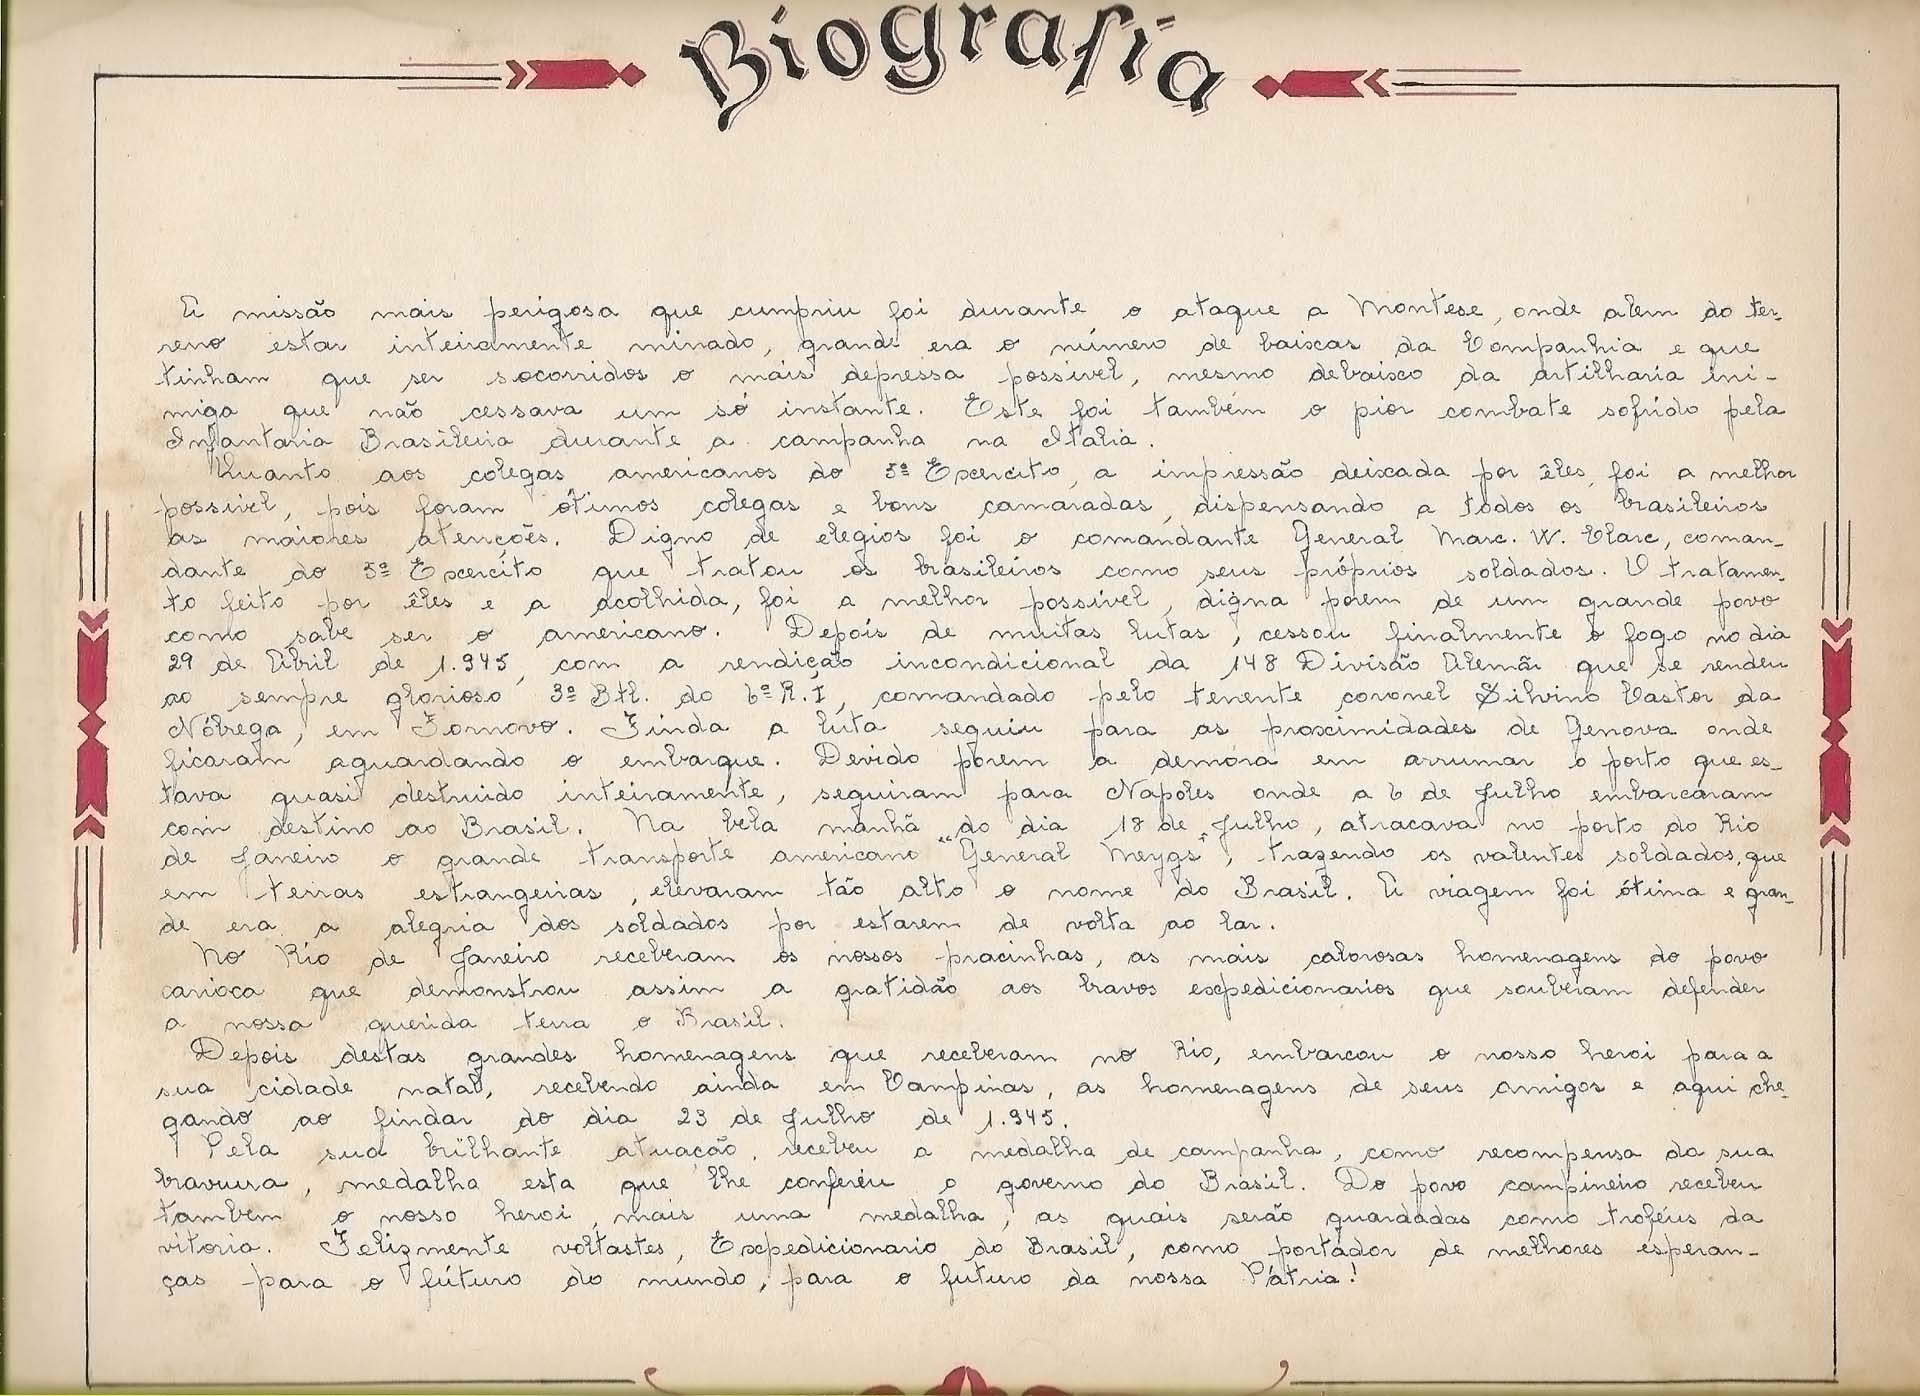 Biografia
A missão mais perigosa que cumpriu foi durante o ataque a Montese, onde alem do ter-
reno estar inteiramente minado, grande era o número de baixas da Companhia e que
tinham que ser socorridos o mais depressa possivel, mesmo debaixo da artilharia ini-
miga que não cessava um só instante. Este foi também o pior combate sofrido pela
Infantaria Brasileira durante a campanha na Italia.
Quanto aos colegas americanos do 5º Exercito, a impressão deixada por êles, foi a melhor
possivel, pois foram ótimos colegas e bons camaradas, dispensando a todos os brasileiros
as maiores atenções. Digno de elegios foi o comandante General Marc. W. Clarc, coman-
dante do 5º Exercito que tratou os brasileiros como seus próprios soldados. O tratamen-
to feito por êles e a acolhida, foi a melhor possivel, digna porem de um grande povo
como sabe ser o americano. Depois de muitas lutas, cessou finalmente o fogo no dia
29 de Abril de 1.945, com a rendição incondicional da 148 Divisão Alemã que se rendeu
ao sempre glorioso 3º Btl. do 6º R.I, comandado pelo tenente coronel Silvino Castor da
Nóbrega, em Fornovo. Finda a luta seguiu para as proximidades de Genova onde
ficaram aguardando o embarque. Devido porem a demóra em arrumar o porto que es-
tava quasi destruido inteiramente, seguiram para Napoles onde a 6 de Julho embarcaram
com destino ao Brasil. Na bela manhã do dia 18 de Julho, atracava no porto do Rio
de Janeiro o grande transporte americano "General Meygs", trazendo os valentes soldados, que
em terras estrangeiras, elevaram tão alto o nome do Brasil. A viagem foi ótima e gran-
de era a alegria dos soldados por estarem de volta ao lar.
No Rio de Janeiro receberam os nossos pracinhas, as mais calorosas homenagens do povo
carioca que demonstrou assim a gratidão aos bravos expedicionarios que souberam defender
a nossa querida terra o Brasil.
Depois destas grandes homenagens que receberam no Rio, embarcou o nosso heroi para a
sua cidade natal, recebendo ainda em Campinas, as homenagens de seus amigos e aqui che-
gando ao findar do dia 23 de Julho de 1.945.
Pela sua brilhante atuação, recebeu a medalha de campanha, como recompensa da sua
bravura, medalha esta que lhe conferiu o governo do Brasil. Do povo campineiro recebeu
tambem o nosso heroi, mais uma medalha, as quais serão guardadas como troféus da
vitoria. Felizmente voltastes, Expedicionario do Brasil, como portador de melhores esperan-
ças para o futuro do mundo, para o futuro da nossa Pátria!